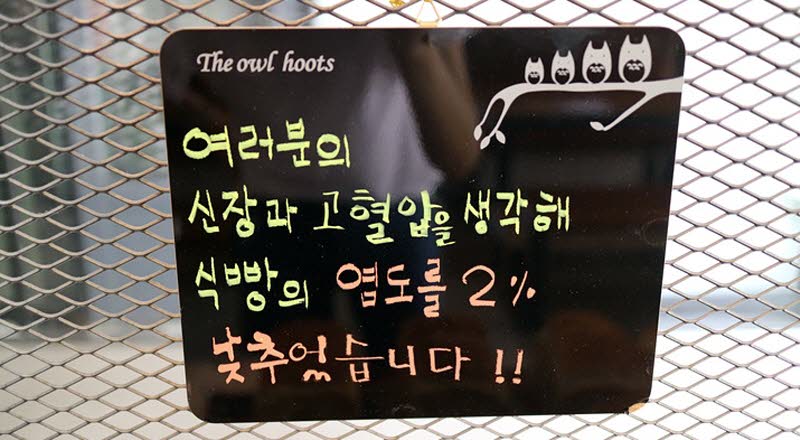 The owl hoots
여러분의
신장과 고혈압을 생각해
식빵의 염도를 2%
낮추었습니다 !!